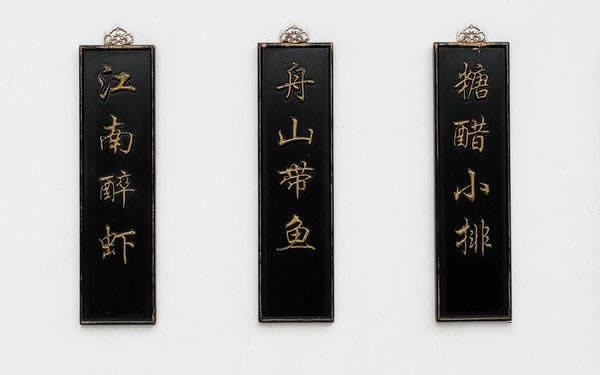 江南醉虾
舟山带鱼
糖醋小排